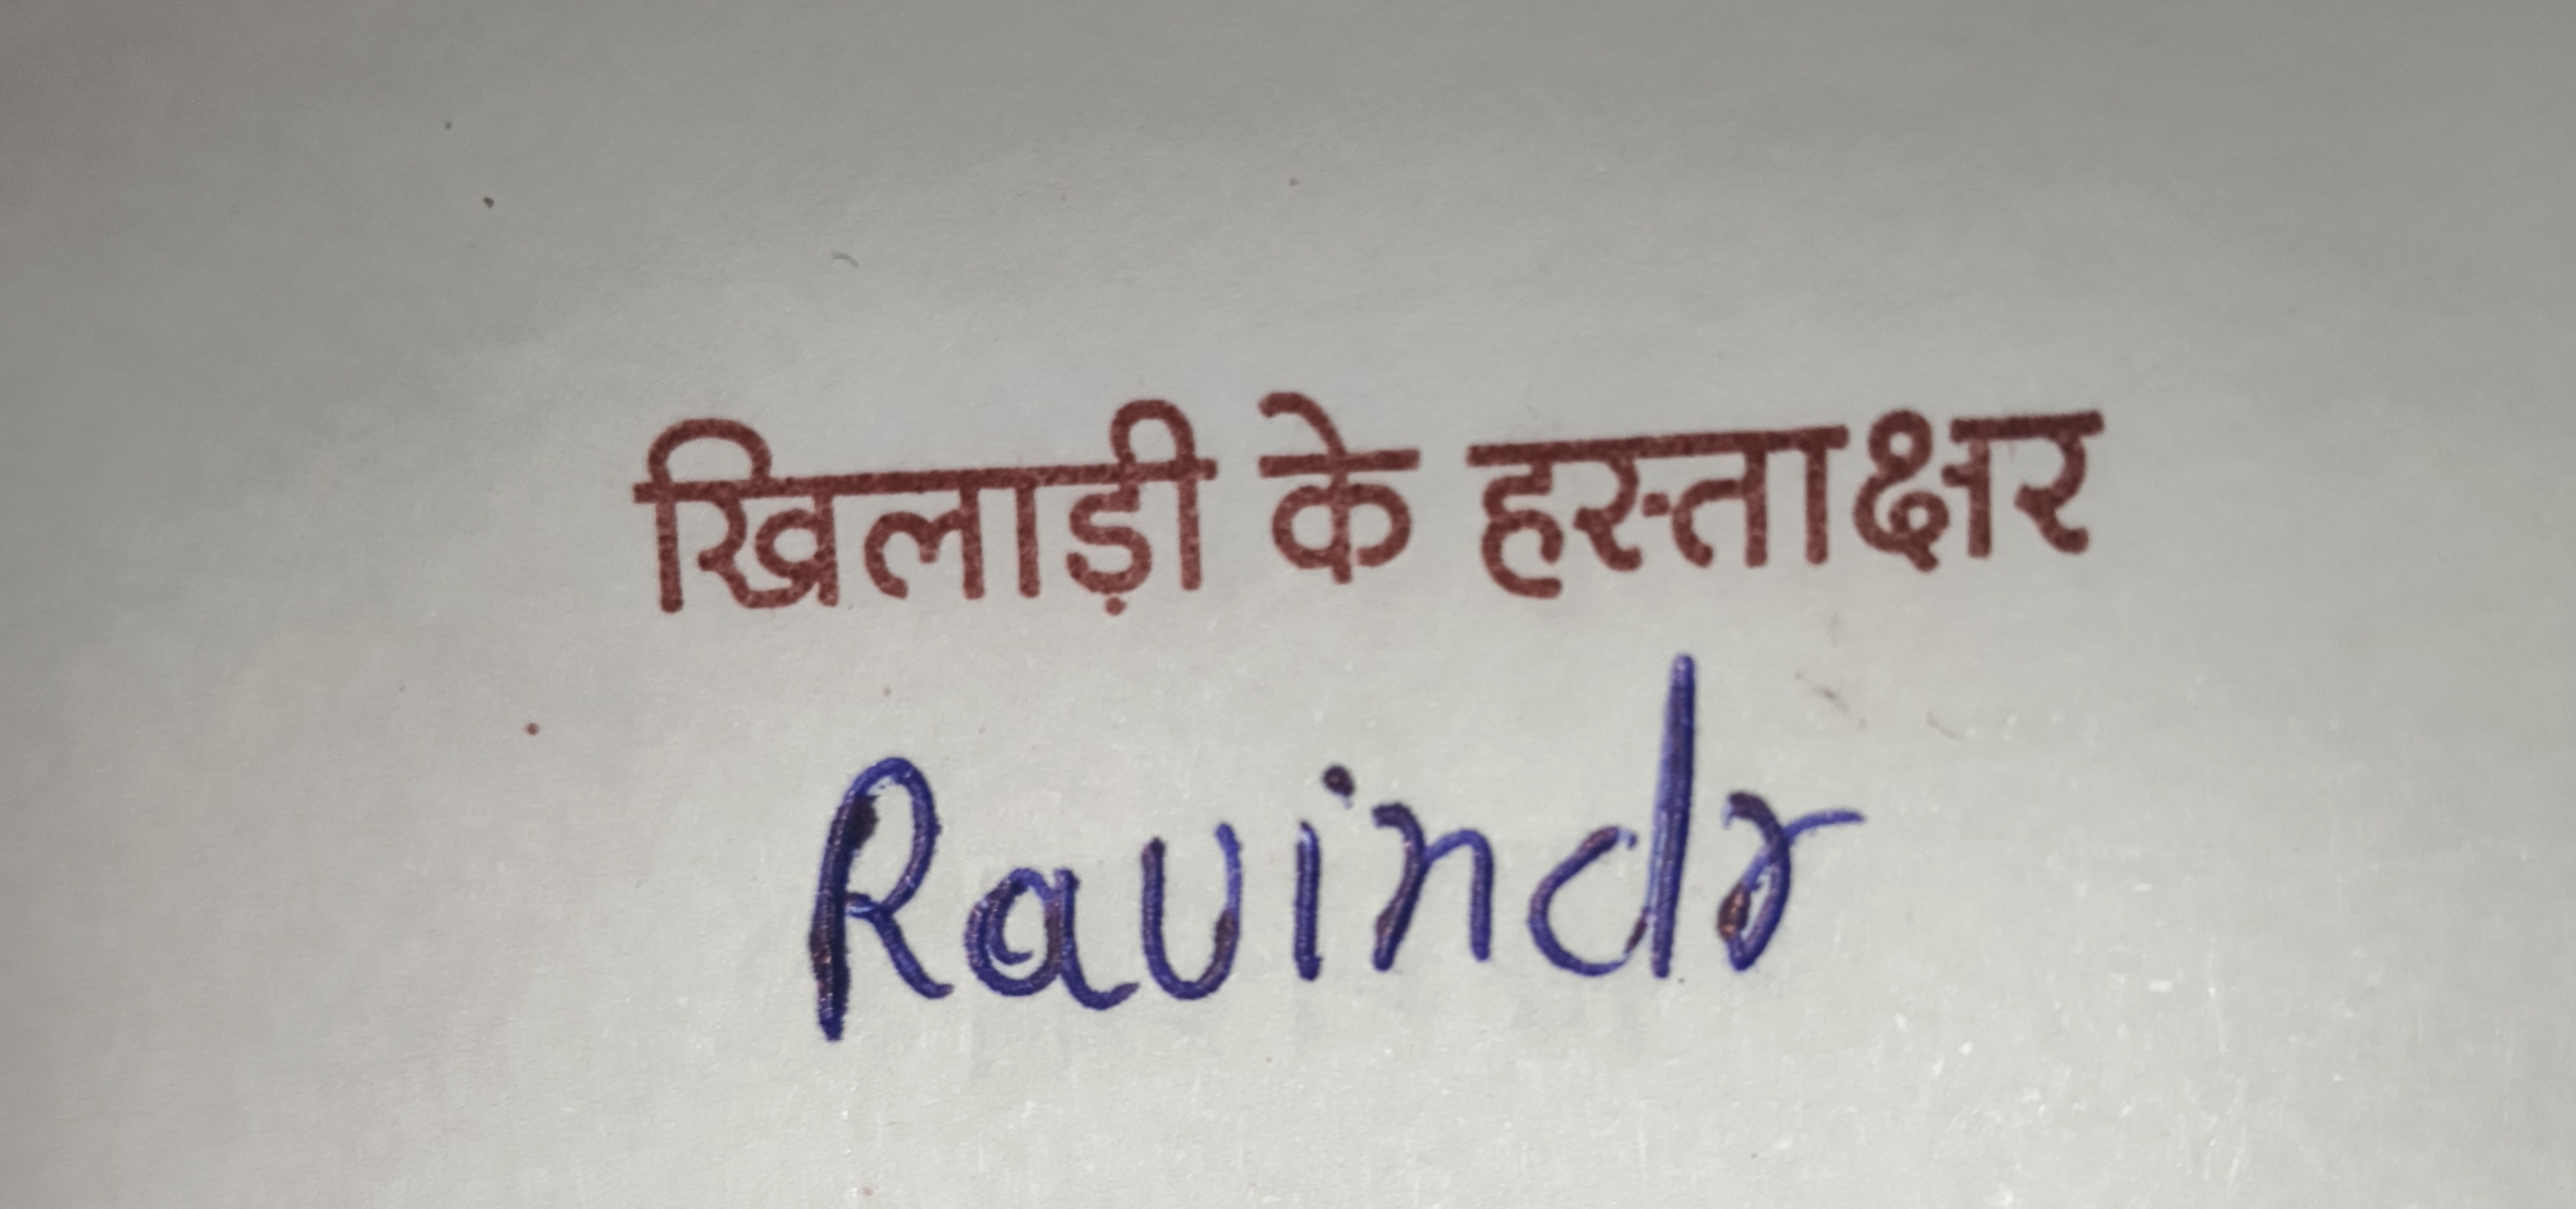 खिलाड़ी के हस्ताक्षर
Ravindr